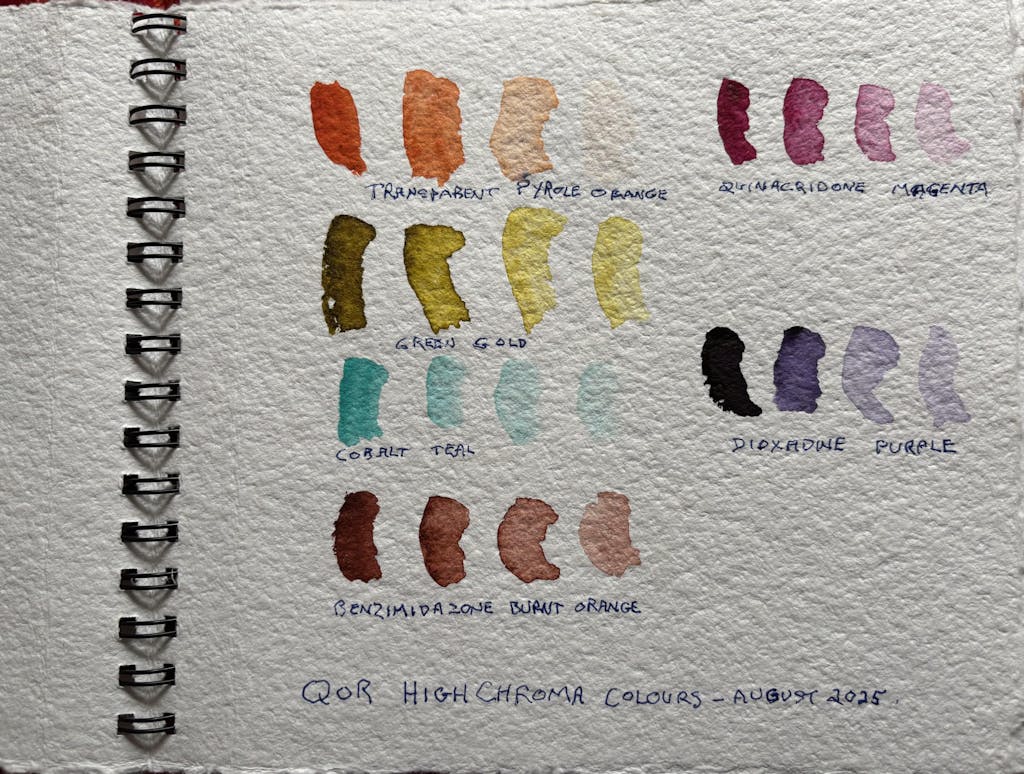 TRANSPARENT PYROLE ORANGE
QUINACRIDONE MAGENTA
GREEN GOLD
COBALT TEAL
DIOXADINE PURPLE
BENZIMIDAZONE BURNT ORANGE
QOR HIGH CHROMA COLOURS - AUGUST 2025.